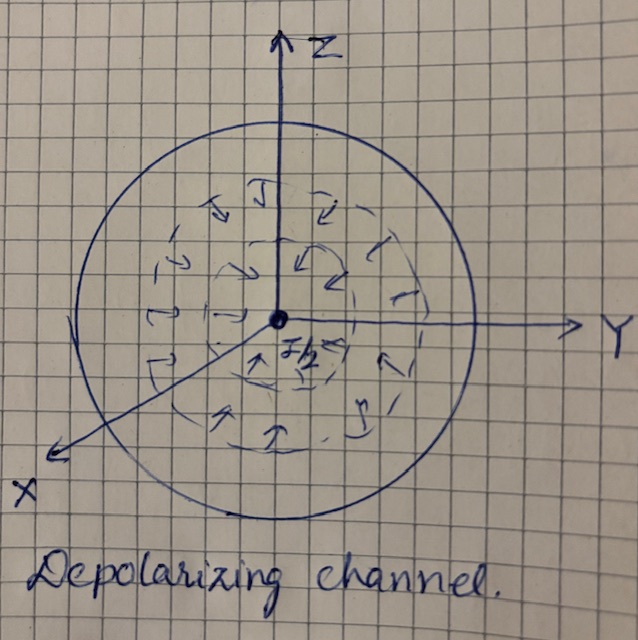 Z
I/2
Y
X
Depolarizing channel.